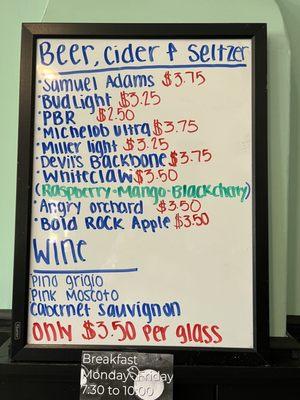 Beer, cider & Seltzer
• Samuel Adams $3.75
• Bud Light $3.25
• PBR $2.50
• Michelob ultra $3.75
• Miller light $3.25
• Devils Backbone $3.75
• Whiteclaw $3.50
(Raspberry • Mango • Blackcherry)
• Angry orchard $3.50
• Bold Rock Apple $3.50
Wine
Pino grigio
Pink Moscoto
Cabernet sauvignon
Only $3.50 per glass
Breakfast
Monday Friday
7:30 to 10:00